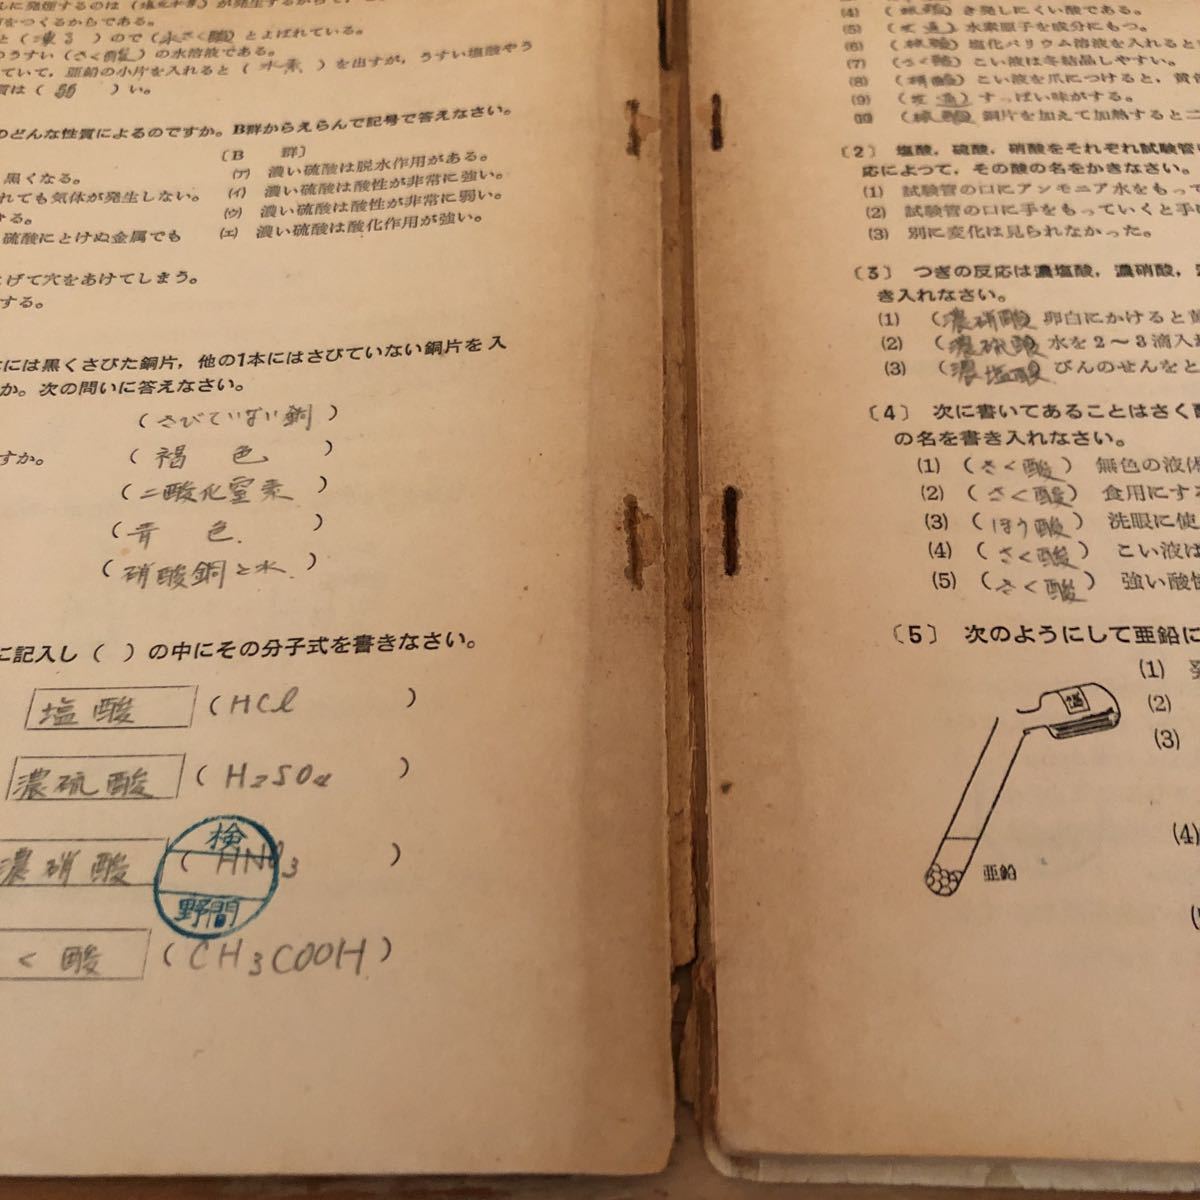 が発生するからで、
をつくるからである。
と（凍る）ので（氷さく酸）とよばれている。
うすい（さく酸）の水溶液である。
ていて，亜鉛の小片を入れると（水素）を出すが，うすい塩酸やう
質は（弱）い。
のどんな性質によるのですか。B群からえらんで記号で答えなさい。
〔B 群〕
(ア) 濃い硫酸は脱水作用がある。
黒くなる。
(イ) 濃い硫酸は酸性が非常に強い。
れても気体が発生しない。
(ウ) 濃い硫酸は酸性が非常に弱い。
ける。
(エ) 濃い硫酸は酸化作用が強い。
硫酸にとけぬ金属でも
げて穴をあけてしまう。
する。
には黒くさびた銅片，他の1本にはさびていない銅片を入
か。次の問いに答えなさい。
（さびていない銅）
すか。
（褐色）
（二酸化窒素）
（青色.）
（硝酸銅と水.）
に記入し（ ）の中にその分子式を書きなさい。
塩酸（HCl）
濃硫酸（H2SO4）
濃硝酸（HNO3）
検
野間
く酸（CH3COOH）
(4) き発しにくい酸である。
(5) （共通）水素原子を成分にもつ。
(6) （硫酸）塩化バリウム溶液を入れると
(7) （さく酸）こい液は冬結晶しやすい。
(8) （硝酸）こい液を爪につけると，黄
(9) （共通）すっぱい味がする。
(10) （硫酸）銅片を加えて加熱すると二
〔2〕 塩酸，硫酸，硝酸をそれぞれ試験管
応によって，その酸の名をかきなさい。
(1) 試験管の口にアンモニア水をもって
(2) 試験管の口に手をもっていくと手に
(3) 別に変化は見られなかった。
〔3〕 つぎの反応は濃塩酸，濃硝酸，
き入れなさい。
(1) （濃硝酸）卵白にかけると黄
(2) （濃硫酸）水を2～3滴入れ
(3) （濃塩酸）びんのせんをと
〔4〕 次に書いてあることはさく酸
の名を書き入れなさい。
(1) （さく酸）無色の液体
(2) （さく酸）食用にす
(3) （ほう酸）洗眼に使
(4) （さく酸）こい液は
(5) （さく酸）強い酸性
〔5〕 次のようにして亜鉛に
(1) 発
(2)
(3)
(4)
亜鉛